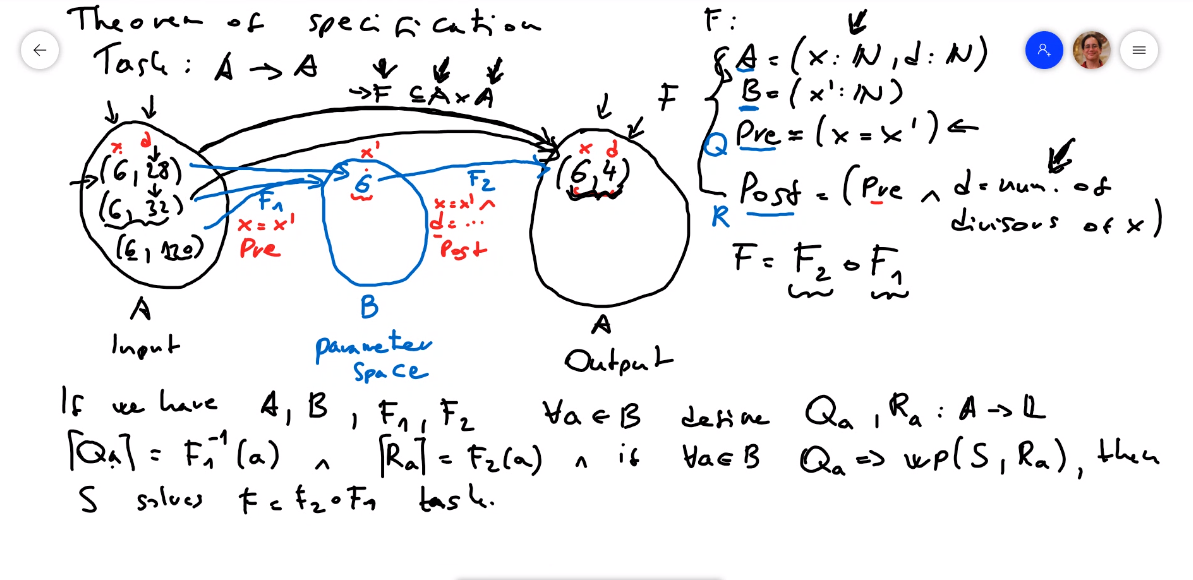 Theorem of specification
Task: A → A
→F ⊆ A x A
x d
(6, 28)
(6, 32)
(6, 120)
A
Input
F₁
x = x'
Pre
x'
6
B
parameter
space
F₂
x = x' ∧
d = ...
Post
F
x d
(6, 4)
A
Output
F:
A = (x: ℕ, d: ℕ)
B = (x': ℕ)
Q Pre = (x = x') ←
R Post = (Pre ∧ d = num. of
divisors of x)
F = F₂ ∘ F₁
If we have A, B, F₁, F₂ ∀a ∈ B define Qa, Ra : A → 𝕃
⌈Qa⌉ = F₁⁻¹(a) ∧ ⌈Ra⌉ = F₂(a) ∧ if ∀a ∈ B Qa ⇒ wp(S, Ra), then
S solves F = F₂ ∘ F₁ task.